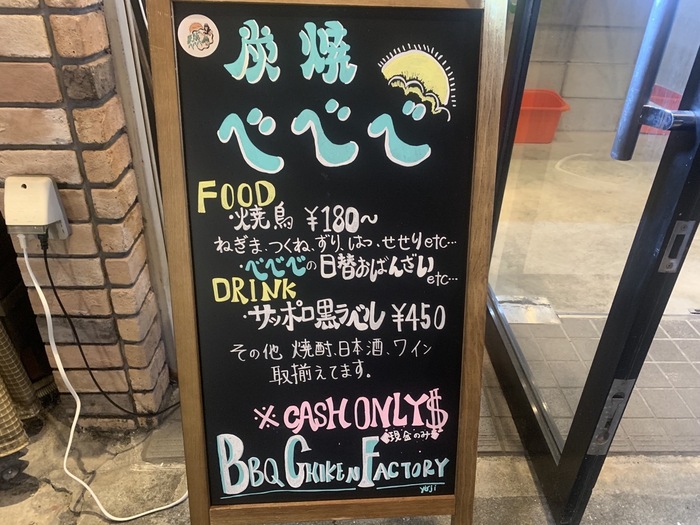 炭焼
べべべ
FOOD
・焼鳥 ¥180〜
ねぎま、つくね、ずり、はつ、せせりetc…
・べべべの日替おばんざい
etc…
DRINK
・サッポロ黒ラベル ¥450
その他 焼酎、日本酒、ワイン
取揃えてます。
※CASH ONLY$
現金のみ
BBQ CHIKEN FACTORY
yuji